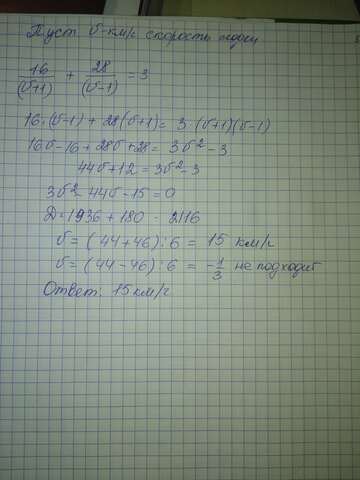 Пуст v-км/ч скорость лодки
16/(v+1) + 28/(v-1) = 3
16·(v-1) + 28(v+1) = 3·(v+1)(v-1)
16v-16 + 28v+28 = 3v²-3
44v+12 = 3v²-3
3v²-44v-15=0
D=1936+180 = 2116
v = (44+46):6 = 15 км/ч
v = (44-46):6 = -1/3 не подходит
Ответ: 15 км/ч